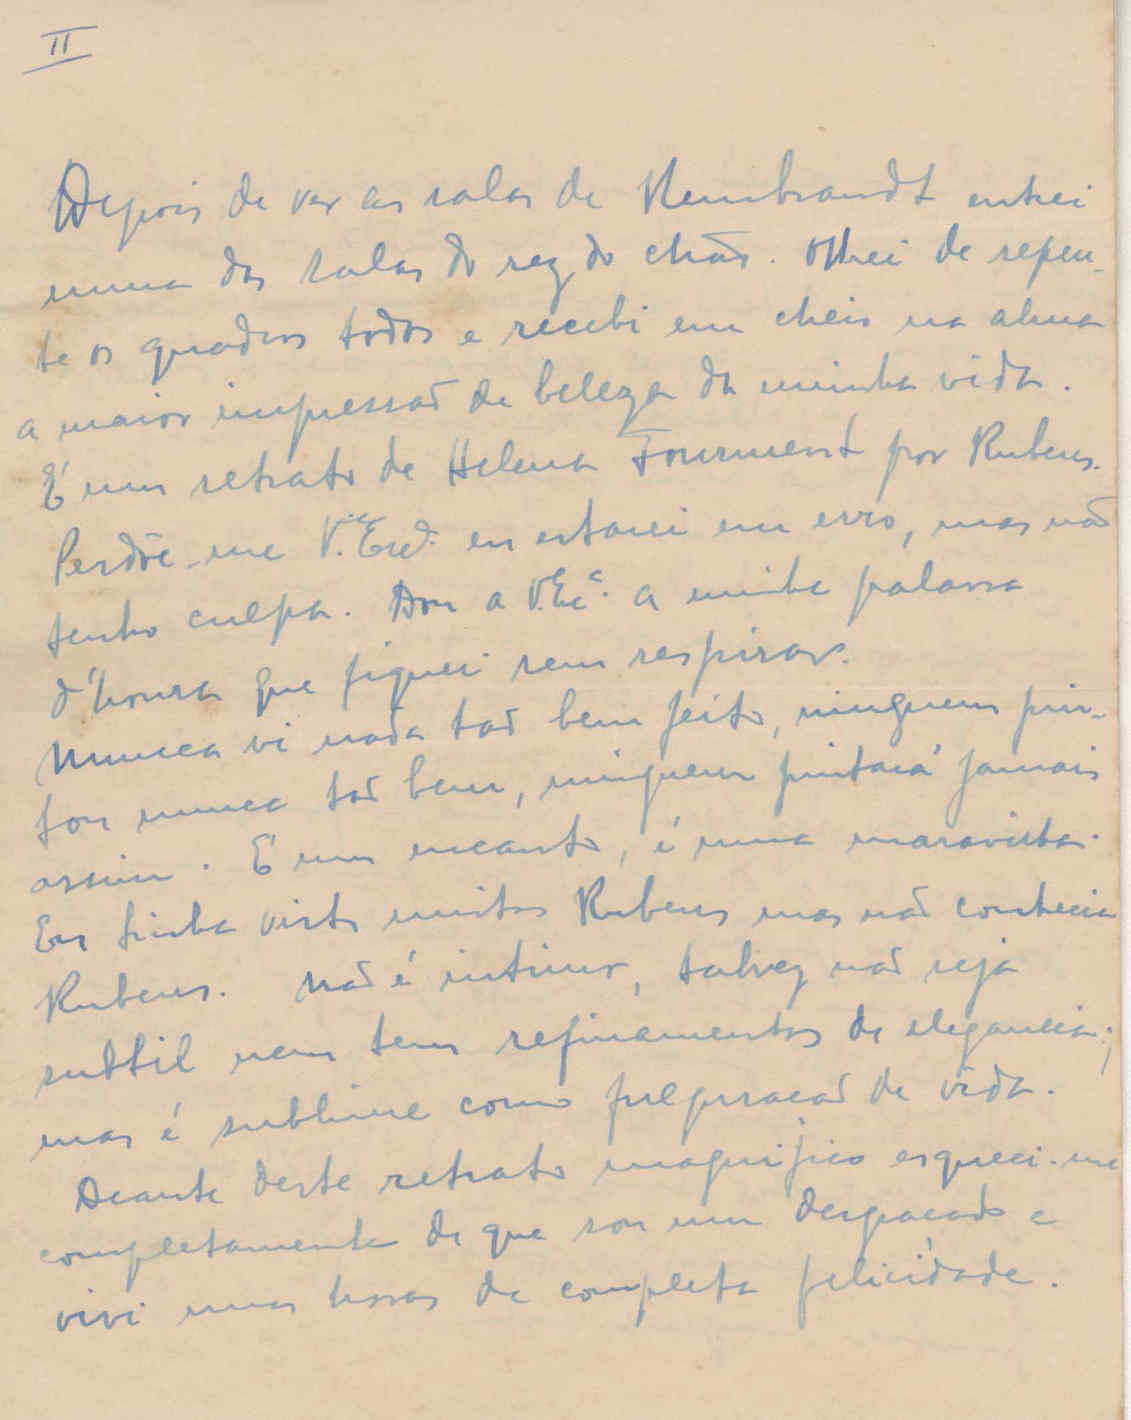 II
Depois de ver as salas de Rembrandt entrei
numa das salas do rez do chão. Olhei de repen-
te os quadros todos e recebi em cheio na alma
a maior impressaõ de beleza da minha vida.
É um retrato de Helena Fourment por Rubens.
Perdõe-me V. Exª. eu estarei em erro, mas naõ
tenho culpa. Dou a V. Exª. a minha palavra
d'honra que fiquei sem respirar.
Nunca vi nada taõ bem feito, ninguem pin-
tou nunca taõ bem, ninguem pintará jamais
assim. É um encanto, é uma maravilha.
Eu tinha visto muitos Rubens mas naõ conhecia
Rubens. Naõ é intimo, talvez naõ seja
subtil nem tem refinamentos de elegancia;
mas é sublime como fulguracaõ de vida.
Deante deste retrato magnifico esqueci-me
completamente de que sou um desgraçado e
vivi umas horas de completa felicidade.